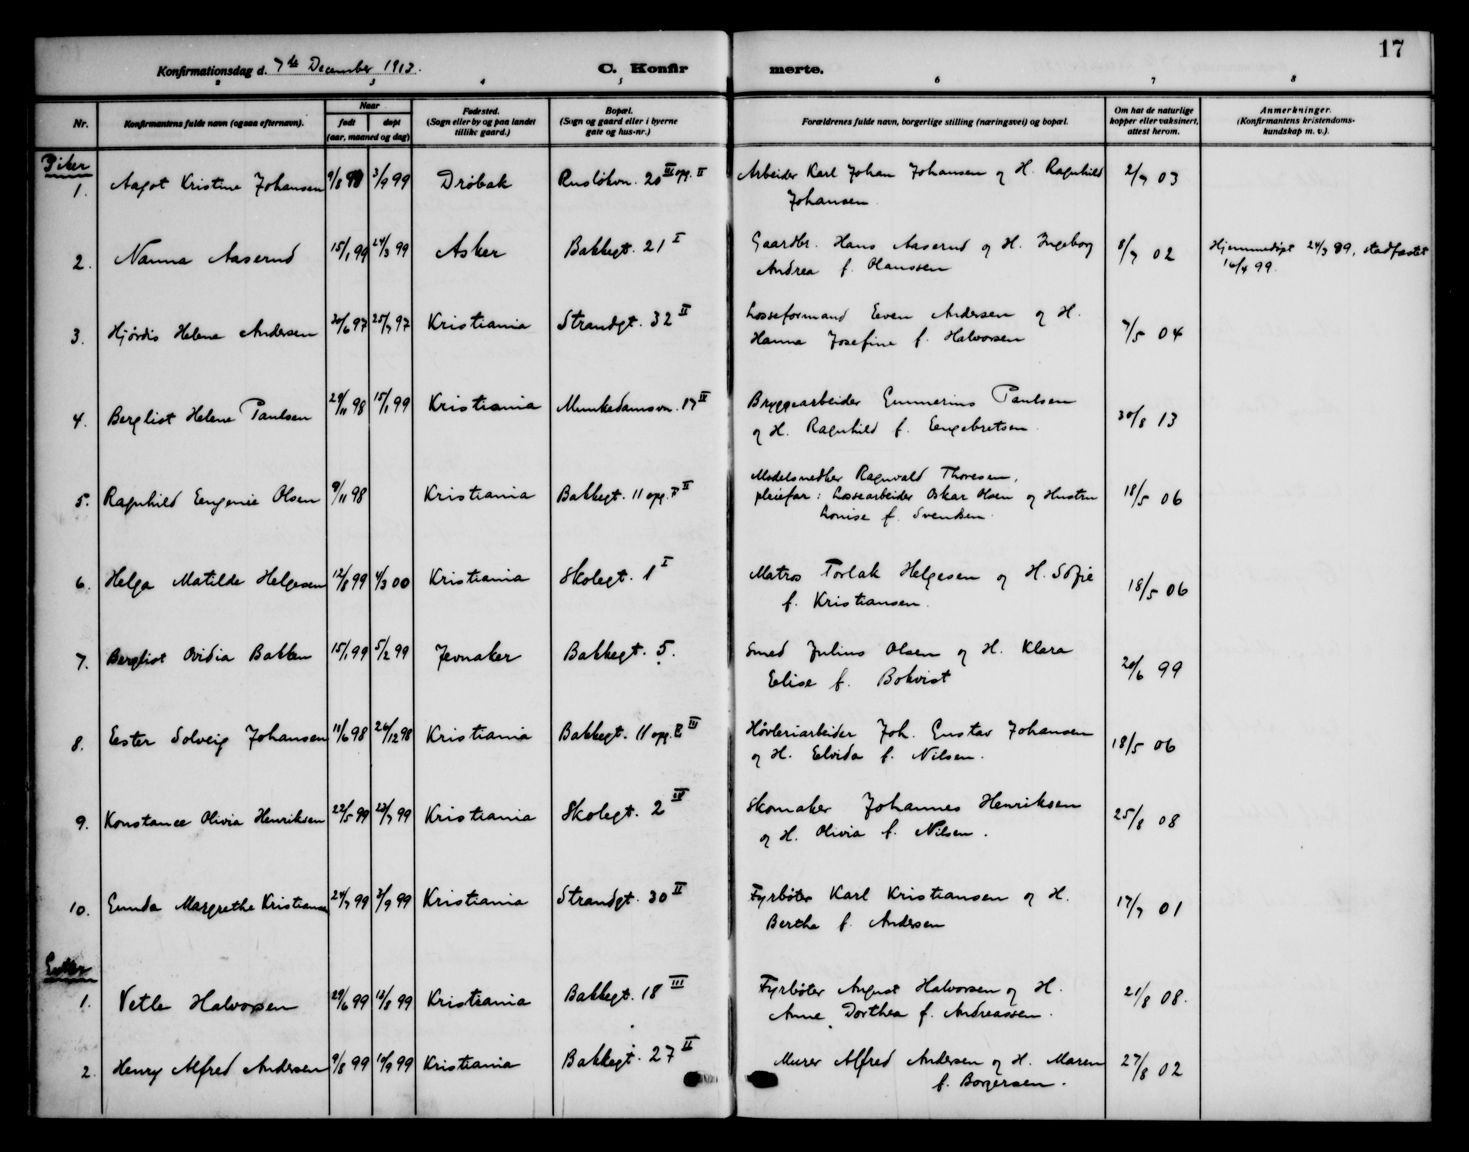 17
Konfirmationsdag d. 7de December 1913.
C. Konfir merte.
2 3 4 5 6 7 8
Nr. Konfirmantens fulde navn (ogsaa efternavn). Naar født døpt (aar, maaned og dag) Fødested. (Sogn eller by og paa landet tillike gaard.) Bopæl. (Sogn og gaard eller i byerne gate og hus-nr.) Forældrenes fulde navn, borgerlige stilling (næringsvei) og bopæl. Om hat de naturlige kopper eller vaksinert, attest herom. Anmerkninger. (Konfirmantens kristendoms-kundskap m. v.).
Piker
1. Aagot Kristine Johansen 9/8 98 3/9 99 Drøbak Rusløkvn. 20 III opg. II Arbeider Karl Johan Johansen og H. Ragnhild 2/7 03
Johansen
2. Nanna Aaserud 15/1 99 24/3 99 Asker Bakkegt. 21 I Gaardbr. Hans Aaserud og H. Ingeborg 8/7 02 Hjemmedøpt 24/3 99, stadfæstet
Andrea f. Olaussen 16/4 99.
3. Hjørdis Helene Andersen 20/6 97 25/7 97 Kristiania Strandgt. 32 II Losseformand Even Andersen og H. 7/5 04
Hanna Josefine f. Halvorsen
4. Bergliot Helene Paulsen 29/11 98 15/1 99 Kristiania Munkedamsvn. 17 II Bryggearbeider Gunnerius Paulsen 30/8 13
og H. Ragnhild f. Engebretsen.
5. Ragnhild Eugenie Olsen 9/11 98 Kristiania Bakkegt. 11 opg. I II Modelsnedker Ragnvald Thoresen, 18/5 06
pleiefar: Lossearbeider Oskar Olsen og Hustru
Louise f. Svendsen.
6. Helga Matilde Helgesen 12/8 99 4/3 00 Kristiania Skolegt. 1 I Matros Torlak Helgesen og H. Sofie 18/5 06
f. Kristiansen.
7. Bergliot Ovidia Bakken 15/1 99 5/2 99 Jevnaker Bakkegt. 5. Smed Julius Olsen og H. Klara 20/6 99
Elise f. Bokvist
8. Ester Solveig Johansen 11/6 98 26/12 98 Kristiania Bakkegt. 11 opg. II III Høvleriarbeider Joh. Gustav Johansen 18/5 06
og H. Elvida f. Nilsen.
9. Konstance Olivia Henriksen 22/5 99 23/7 99 Kristiania Skolegt. 2 IV Skomaker Johannes Henriksen 25/8 08
og H. Olivia f. Nilsen.
10. Gunda Margrethe Kristiansen 24/7 99 3/9 99 Kristiania Strandgt. 30 II Fyrbøter Karl Kristiansen og H. 17/7 01
Berthe f. Andersen
Gutter
1. Vetle Halvorsen 29/6 99 12/8 99 Kristiania Bakkegt. 18 III Fyrbøter August Halvorsen og H. 21/8 08.
Anne Dorthea f. Andreassen.
2 Henry Alfred Andersen 9/8 99 10/9 99 Kristiania Bakkegt. 27 II Murer Alfred Andersen og H. Maren 27/8 02
f. Borgersen.